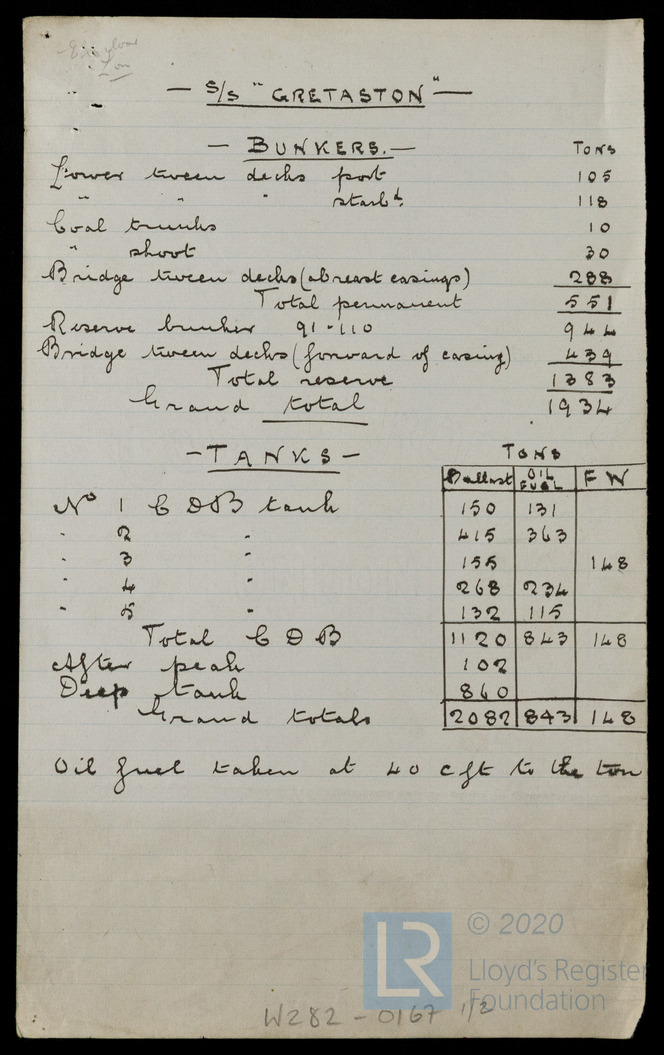 — S/S "GRETASTON" —
— BUNKERS. — TONS
Lower tween decks port 105
" " " starbd. 118
Coal trunks 10
" shoot 30
Bridge tween decks (abreast casings) 288
Total permanent 551
Reserve bunker 91-110 944
Bridge tween decks (forward of casing) 439
Total reserve 1383
Grand total 1934
— TANKS — TONS
Ballast OIL FUEL F W
No 1 C DB tank 150 131
" 2 " 415 363
" 3 " 155 148
" 4 " 268 234
" 5 " 132 115
Total C D B 1120 843 148
After peak 102
Deep tank 860
Grand totals 2082 843 148
Oil fuel taken at 40 cft to the ton
LR © 2020
Lloyd's Register
Foundation
W282 - 0167 1/2